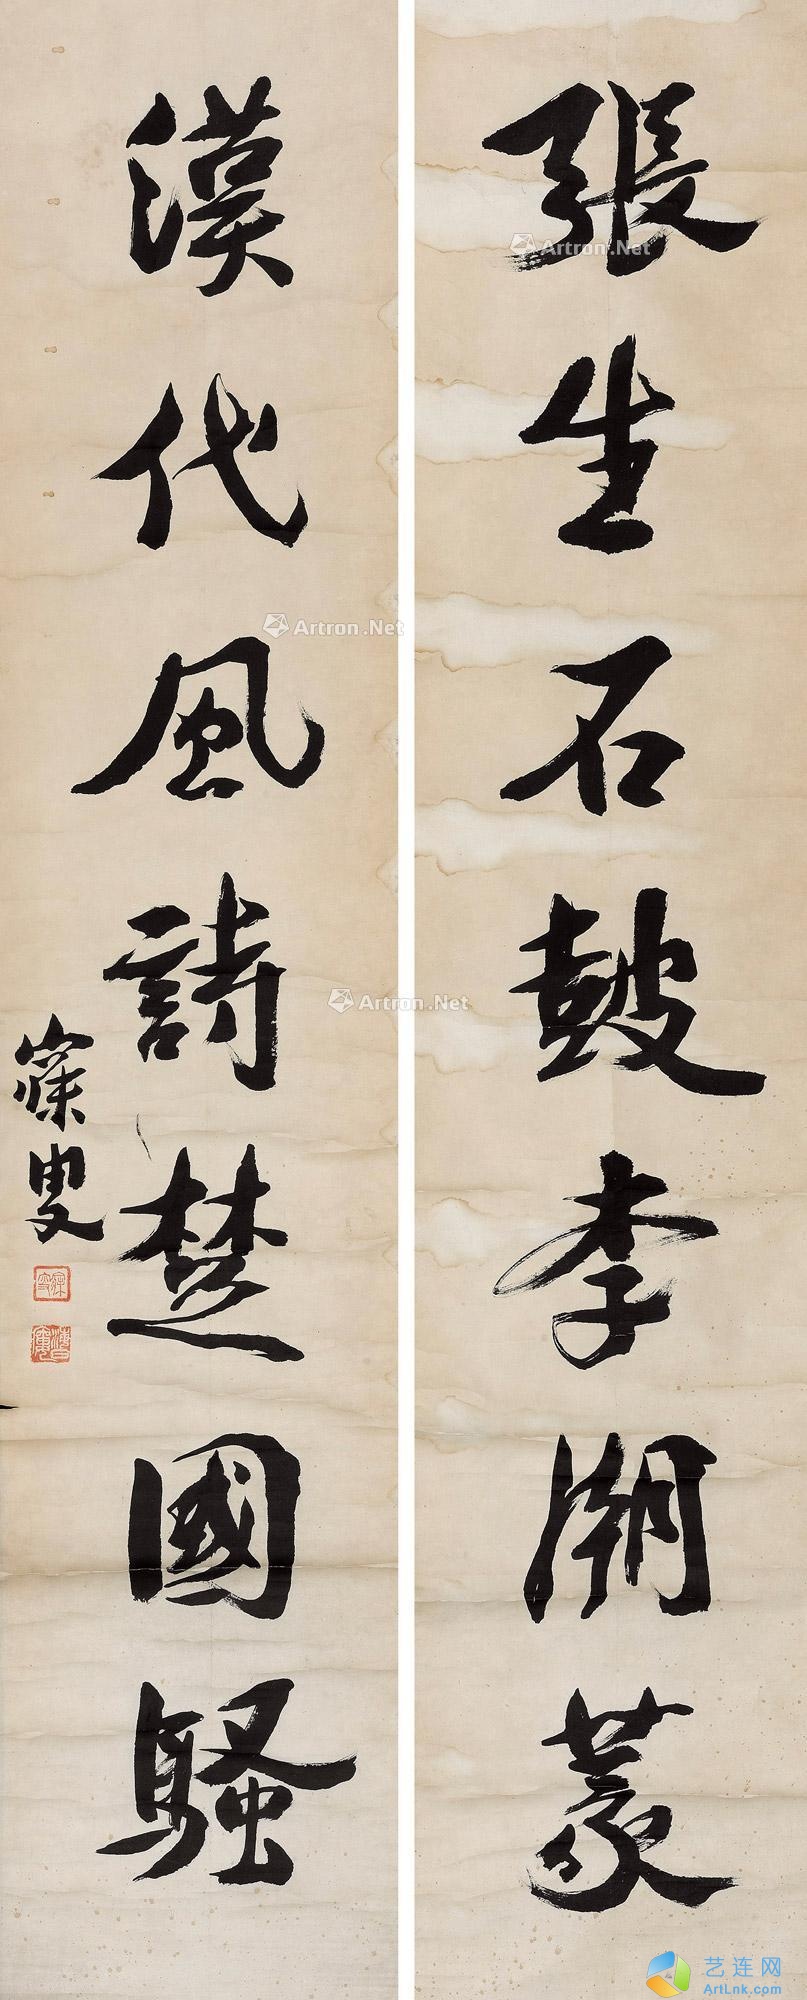 張生石鼓李潮篆
漢代風詩楚國騷
寐叟
Artron.Net
Artron.Net
Artron.Net
艺连网
ArtLnk.com